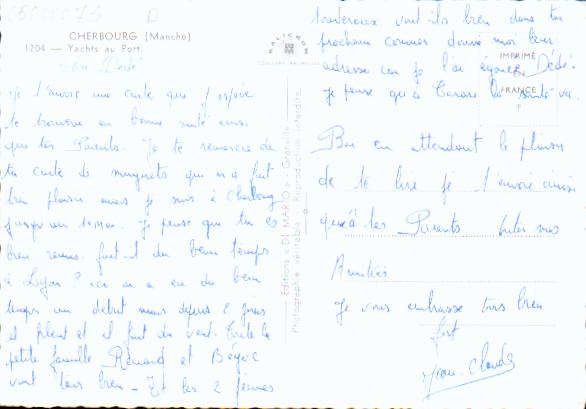 CHERBOURG (Manche)
1204 — Yachts au Port.
Mon Dédé
Je t'envoie une carte que j'espère
te trouvera en bonne santé ainsi
que tes Parents. Je te remercie de
ta carte de muguets qui m'a fait
bien plaisir mais je suis à Cherbourg
jusqu'au
Je pense que tu es
bien remis. fait-il du beau temps
à Lyon? ici on a eu du beau
temps au début mais depuis 2 jours
il pleut et il fait du vent. Toute la
petite famille Renard et
vont tous bien - Et les 2 jeunes
tourereaux vont ils bien dans ton
prochain courrier donne moi leur
adresse car je l'ai égarée Dédé.
Je pense qu'à Tarare la santé va.
Bon en attendant le plaisir
de te lire je t'envoie ainsi
qu'à tes Parents toutes mes
Amitiés
Je vous embrasse tous bien
fort
Jean-Claude
HALICROM
IMPRIMÉ
EN
FRANCE
Editions « DI MARIO » - Granville
Photographie véritable - Reproduction interdite